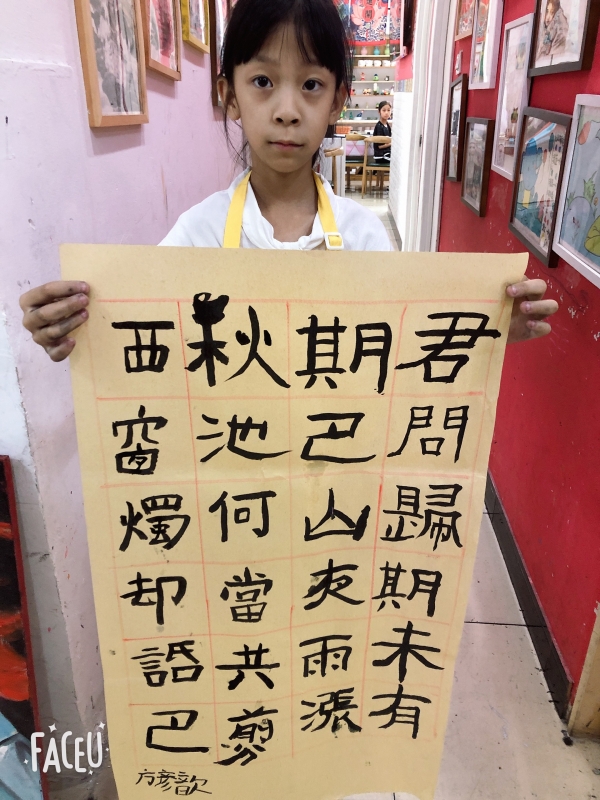 君問歸期未有
期巴山夜雨漲
秋池何當共剪
西窗燭却話巴
FACEU